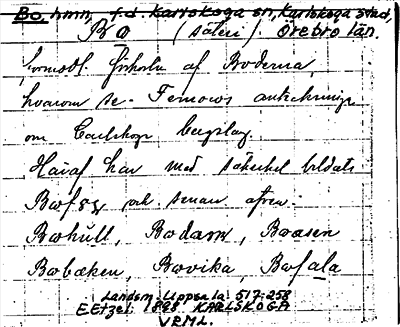 Bo, hmn, f.d. Karlskoga sn, Karlskoga stad,
Bo (säteri). Örebro län.
af Boderna,
hvarom se Fernows anteckningar
om Carlskoga bergslag.
Häraf har med säkerhet bildats
och senare äfven:
Bohult, Bodam, Boåsen
Bobäcken, Bovika,
Landsm. Uppsala 517:258
E. Etzel 1898 KARLSKOGA
VRML.